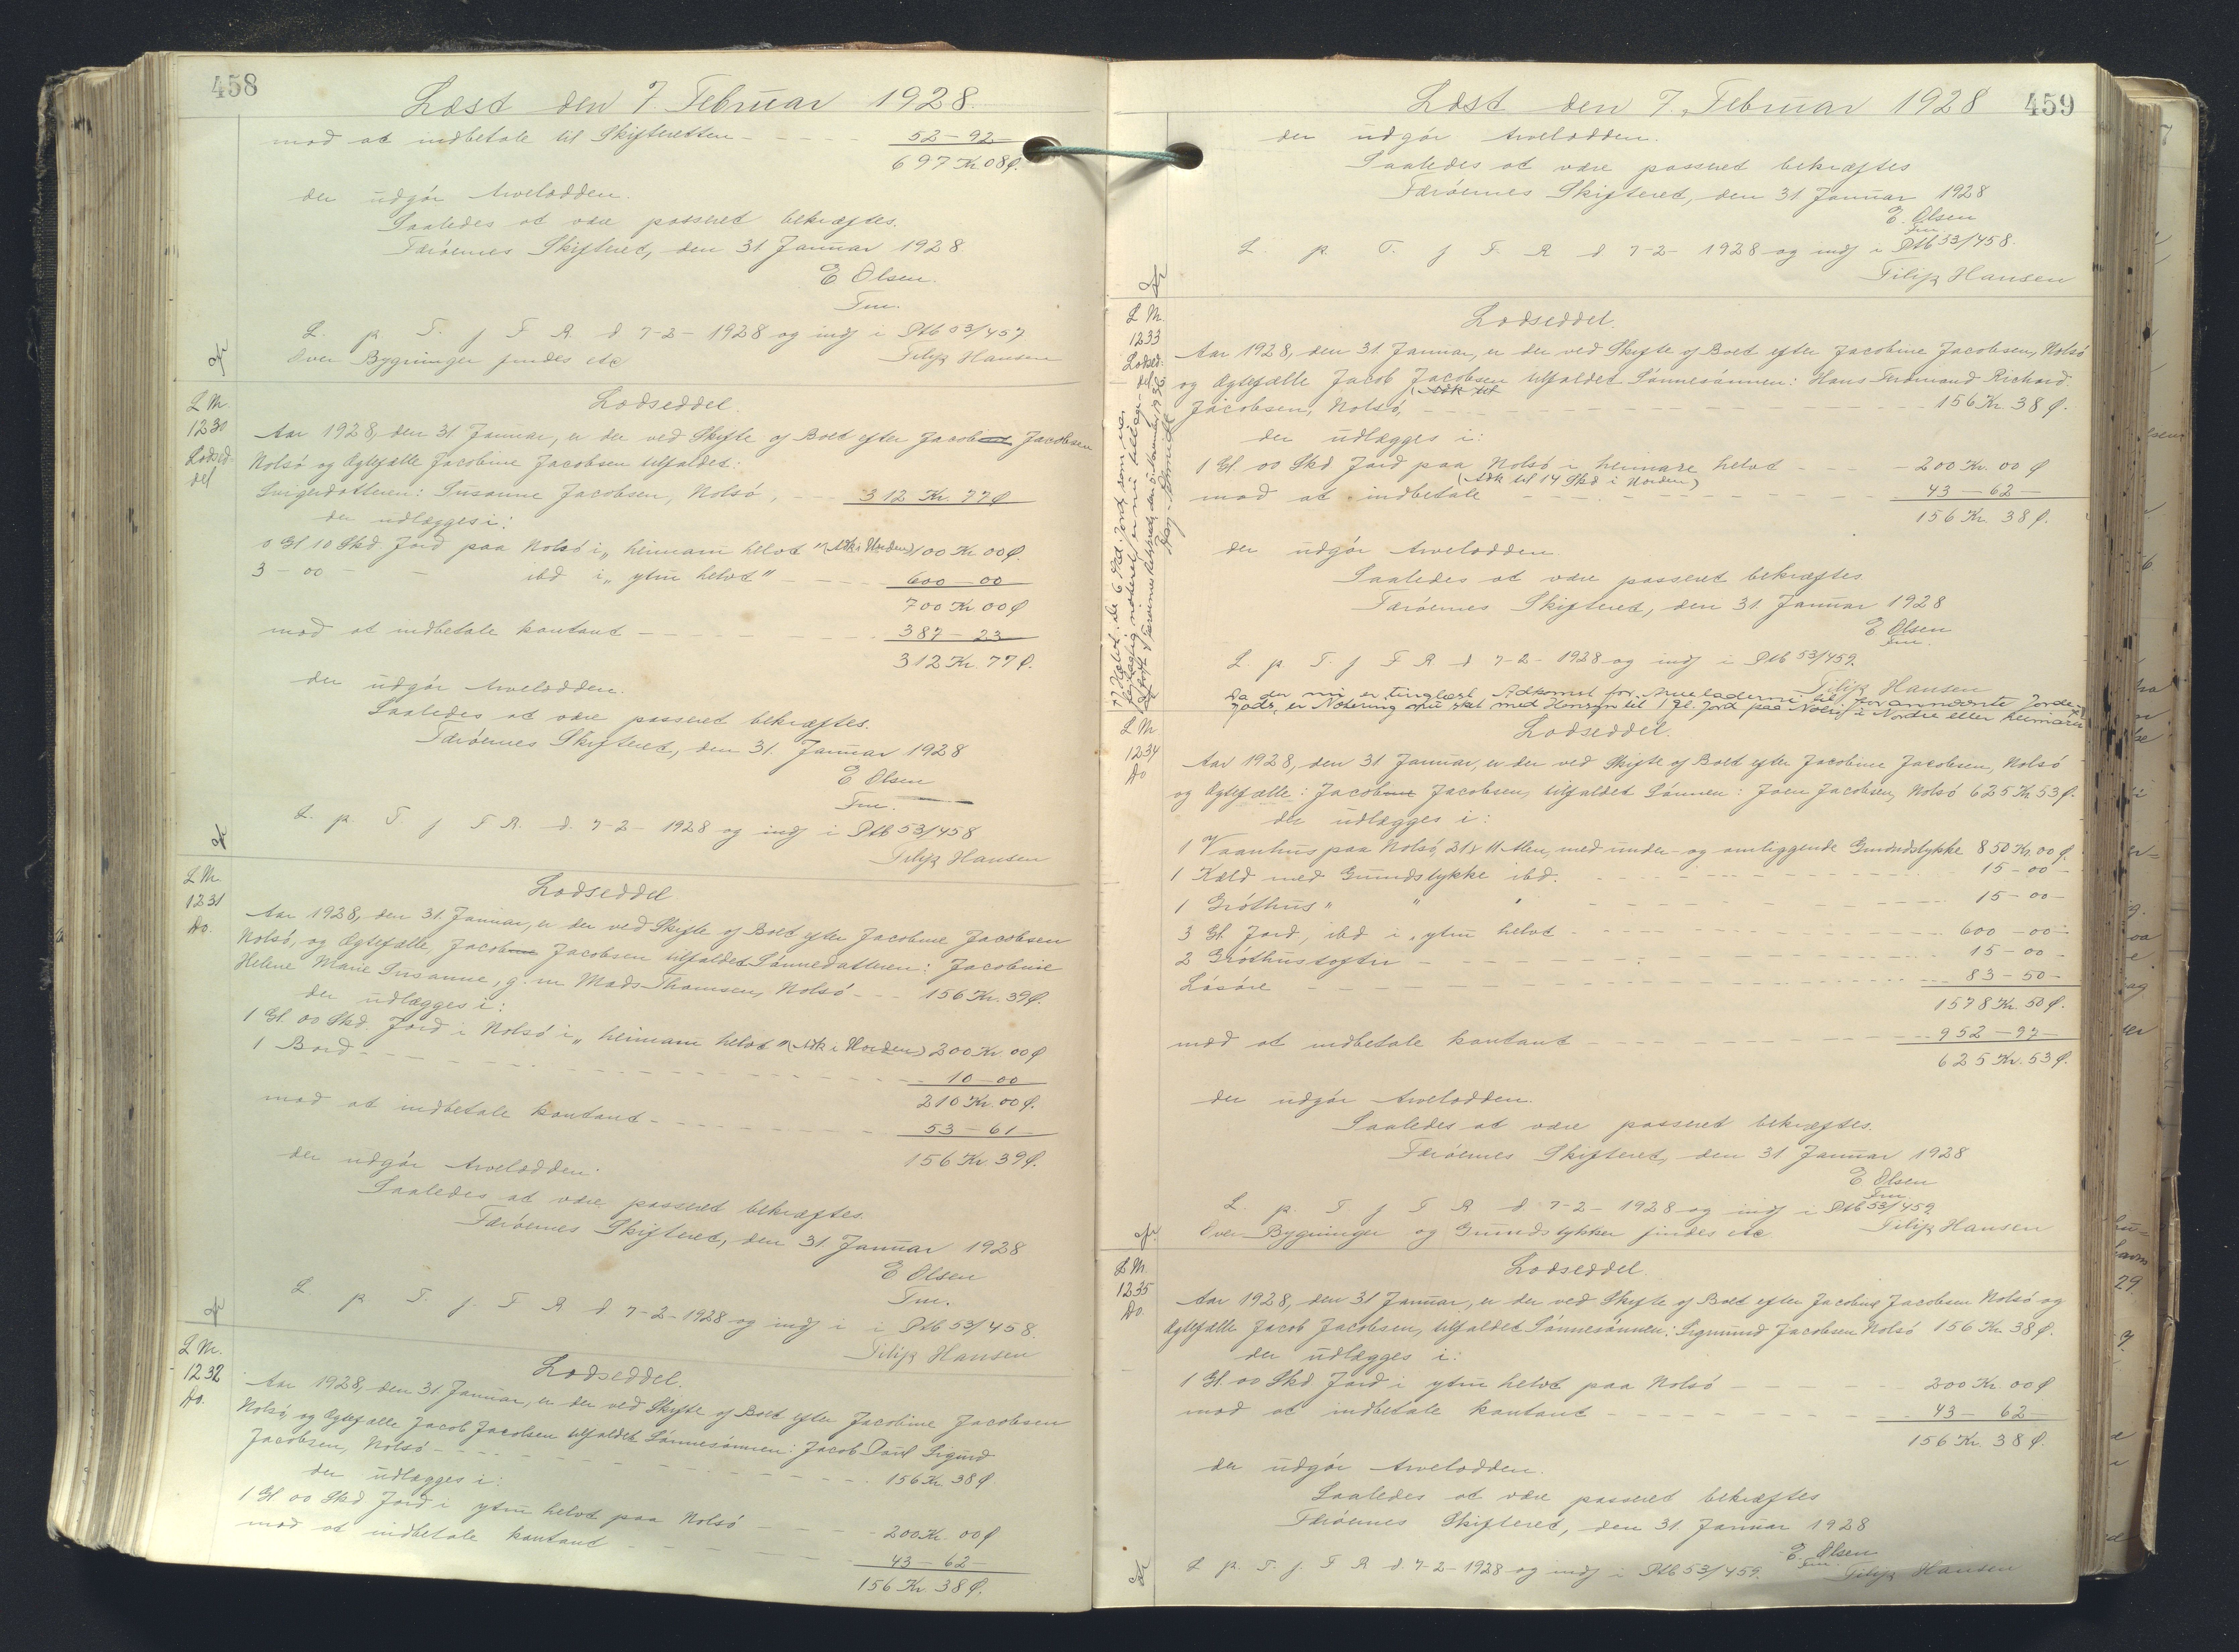 458
Læst den 7. Februar 1928.
mod at indbetale til Skifteretten 52-92
697 Kr 08 Ø.
der udgör Arvelodden.
Saaledes at være passeret bekræftes.
Færöernes Skifteret, den 31 Januar 1928
E Olsen.
Fm.
L. p. T. f F R. d 7-2-1928 og indf i Ptb 53/457
Over Bygninger findes etc Filip Hansen
L M.
1230
Lodsed-
del
Lodseddel.
Aar 1928, den 31. Januar, er der ved Skifte af Boet efter Jacob Jacobsen
Nolsö og Ægtefælle Jacobine Jacobsen tilfaldet:
Svigerdatteren: Susanne Jacobsen, Nolsö, 312 Kr. 77 Ø
der udlægges i:
0 Gl 10 Skd Jord paa Nolsö i „heimara helvt" (Adk i Norden) 100 Kr 00 Ø.
3 - 00 - - ibd i „ytru helvt" 600-00
700 Kr 00 Ø
mod at indbetale kontant 387-23
312 Kr. 77 Ø.
der udgör Arvelodden.
Saaledes at være passeret bekræftes.
Færöernes Skifteret, den 31. Januar 1928
E Olsen
Fm.
L. p. T. f F R. d. 7-2-1928 og indf i Ptb 53/458
Filip Hansen
L M.
1231
Do.
Lodseddel
Aar 1928, den 31. Januar, er der ved Skifte af Boet efter Jacobine Jacobsen
Nolsö, og Ægtefælle, Jacob Jacobsen tilfaldet Sönnedatteren: Jacobine
Helene Marie Susanne, g. m Mads Thomsen, Nolsö 156 Kr. 39 Ø.
der udlægges i:
1 Gl. 00 Skd. Jord i Nolsö i „heimara helvt" (Adk i Norden) 200 Kr. 00 Ø
1 Bord 10-00
210 Kr. 00 Ø.
mod at indbetale kontant 53-61
156 Kr. 39 Ø.
der udgör Arvelodden.
Saaledes at være passeret bekræftes.
Færöernes Skifteret, den 31. Januar 1928
E Olsen
Fm.
L. p. T. f. F R d 7-2-1928 og indf i i Ptb 53/458.
Filip Hansen
L M.
1232
Do.
Lodseddel.
Aar 1928, den 31. Januar, er der ved Skifte af Boet efter Jacobine Jacobsen
Nolsö, og Ægtefælle Jacob Jacobsen tilfaldet Sönnesönnen: Jacob Poul Sigurd
Jacobsen, Nolsö 156 Kr 38 Ø
der udlægges i:
1 Gl 00 Skd Jord i ytru helvt paa Nolsö 200 Kr. 00 Ø
mod at indbetale kontant 43-62
156 Kr. 38 Ø.
Læst den 7. Februar 1928 459
der udgör Arvelodden.
Saaledes at være passeret bekræftes
Færöernes Skifteret, den 31 Januar 1928
E. Olsen
Fm.
L. p. T. f F. R d 7-2-1928 og indf i Ptb 53/458.
Filip Hansen
L M.
1233
Lodsed-
del
Lodseddel.
Aar 1928, den 31. Januar, er der ved Skifte af Boet efter Jacobine Jacobsen, Nolsö
og Ægtefælle Jacob Jacobsen tilfaldet Sönnesönnen: Hans Ferdinand Richard
Jacobsen, Nolsö, 156 Kr. 38 Ø.
der udlægges i:
1 Gl. 00 Skd Jord paa Nolsö i heimare helvt 200 Kr. 00 Ø
(Adk til 14 Skd i Norden)
mod at indbetale 43-62
156 Kr. 38 Ø.
der udgör Arvelodden.
Saaledes at være passeret bekræftes.
Færöernes Skifteret, den 31. Januar 1928
E Olsen
Fm.
L. p. T. f F R d 7-2-1928 og indf i Ptb 53/459.
Filip Hansen
Da der nu er tinglæst Adkomst for Arveladerne til forannævnte Jorde-
gods, er Notering nu slet med Hensyn til 1 Gl. Jord paa Nolsö i Nordre eller heimara
L M
1234
Do
Lodseddel.
Aar 1928, den 31 Januar, er der ved Skifte af Boet efter Jacobine Jacobsen, Nolsö
og Ægtefælle: Jacob Jacobsen, tilfaldet Sönnen: Joen Jacobsen, Nolsö 625 Kr 53 Ø.
der udlægges i:
1 Vaanhus paa Nolsö, 21 x 11 Alen, med under- og omliggende Grundstykke 850 Kr. 00 Ø.
1 Kæld med Grundstykke ibd. 15-00-
1 Gróthus " " " 15-00-
3 Gl. Jord, ibd i „ytru helvt 600-00-
2 Gróthustoftir 15-00-
Lösöre 83-50-
1578 Kr. 50 Ø.
mod at indbetale kontant 952-97-
625 Kr. 53 Ø.
der udgör Arvelodden.
Saaledes at være passeret bekræftes.
Færöernes Skifteret, den 31 Januar 1928
E Olsen
Fm.
L. p. T f F R d 7-2-1928 og indf i Ptb 53/459
Over Bygninger og Grundstykker findes etc. Filip Hansen
L M.
1235
Do.
Lodseddel.
Aar 1928, den 31 Januar, er der ved Skifte af Boet efter Jacobine Jacobsen Nolsö og
Ægtefælle Jacob Jacobsen, tilfaldet Sönnesönnen: Sigmund Jacobsen Nolsö 156 Kr. 38 Ø.
der udlægges i:
1 Gl. 00 Skd Jord i ytru helvt paa Nolsö 200 Kr. 00 Ø
mod at indbetale kontant 43-62
156 Kr. 38 Ø.
der udgör Arvelodden.
Saaledes at være passeret bekræftes
Færöernes Skifteret, den 31. Januar 1928
E. Olsen
Fm.
L p. T. f. F R d. 7-2-1928 og indf i Ptb 53/459. Filip Hansen